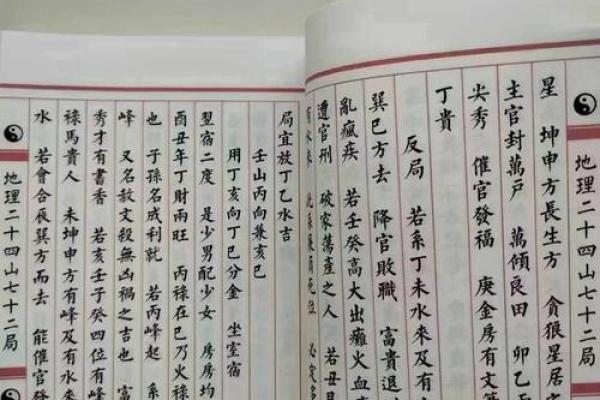 地理二十四山七十二局
星 坤申方長生方 貪狼星居
主官封萬戶 萬傾良田 卯乙
尖秀 催官發福 庚金房有文
丁貴
反局 若系丁未水來及有
巽巳方去 降官敗職 富貴退
亂瘋疾 若壬癸高大出癱火血
遭官刑 破家蕩產之人 若丑
有水來 必定多
局宜放丁乙水吉
壬山丙向兼亥巳
用丁亥向丁巳分金 坐室宿
翌宿二度 是少男配少女 房房均
酉丑年丁財兩旺 丙祿在巳乃火祿
也 子孫名成利就 若丙峰起 系
峰 又名赦文殺無凶禍之吉也 富
秀才有書香 若亥壬子癸四位有峰
祿馬貴人 未坤申方有峰及有水來
水 若會合辰巽方而去 能催官發
地理二十四山七十二局